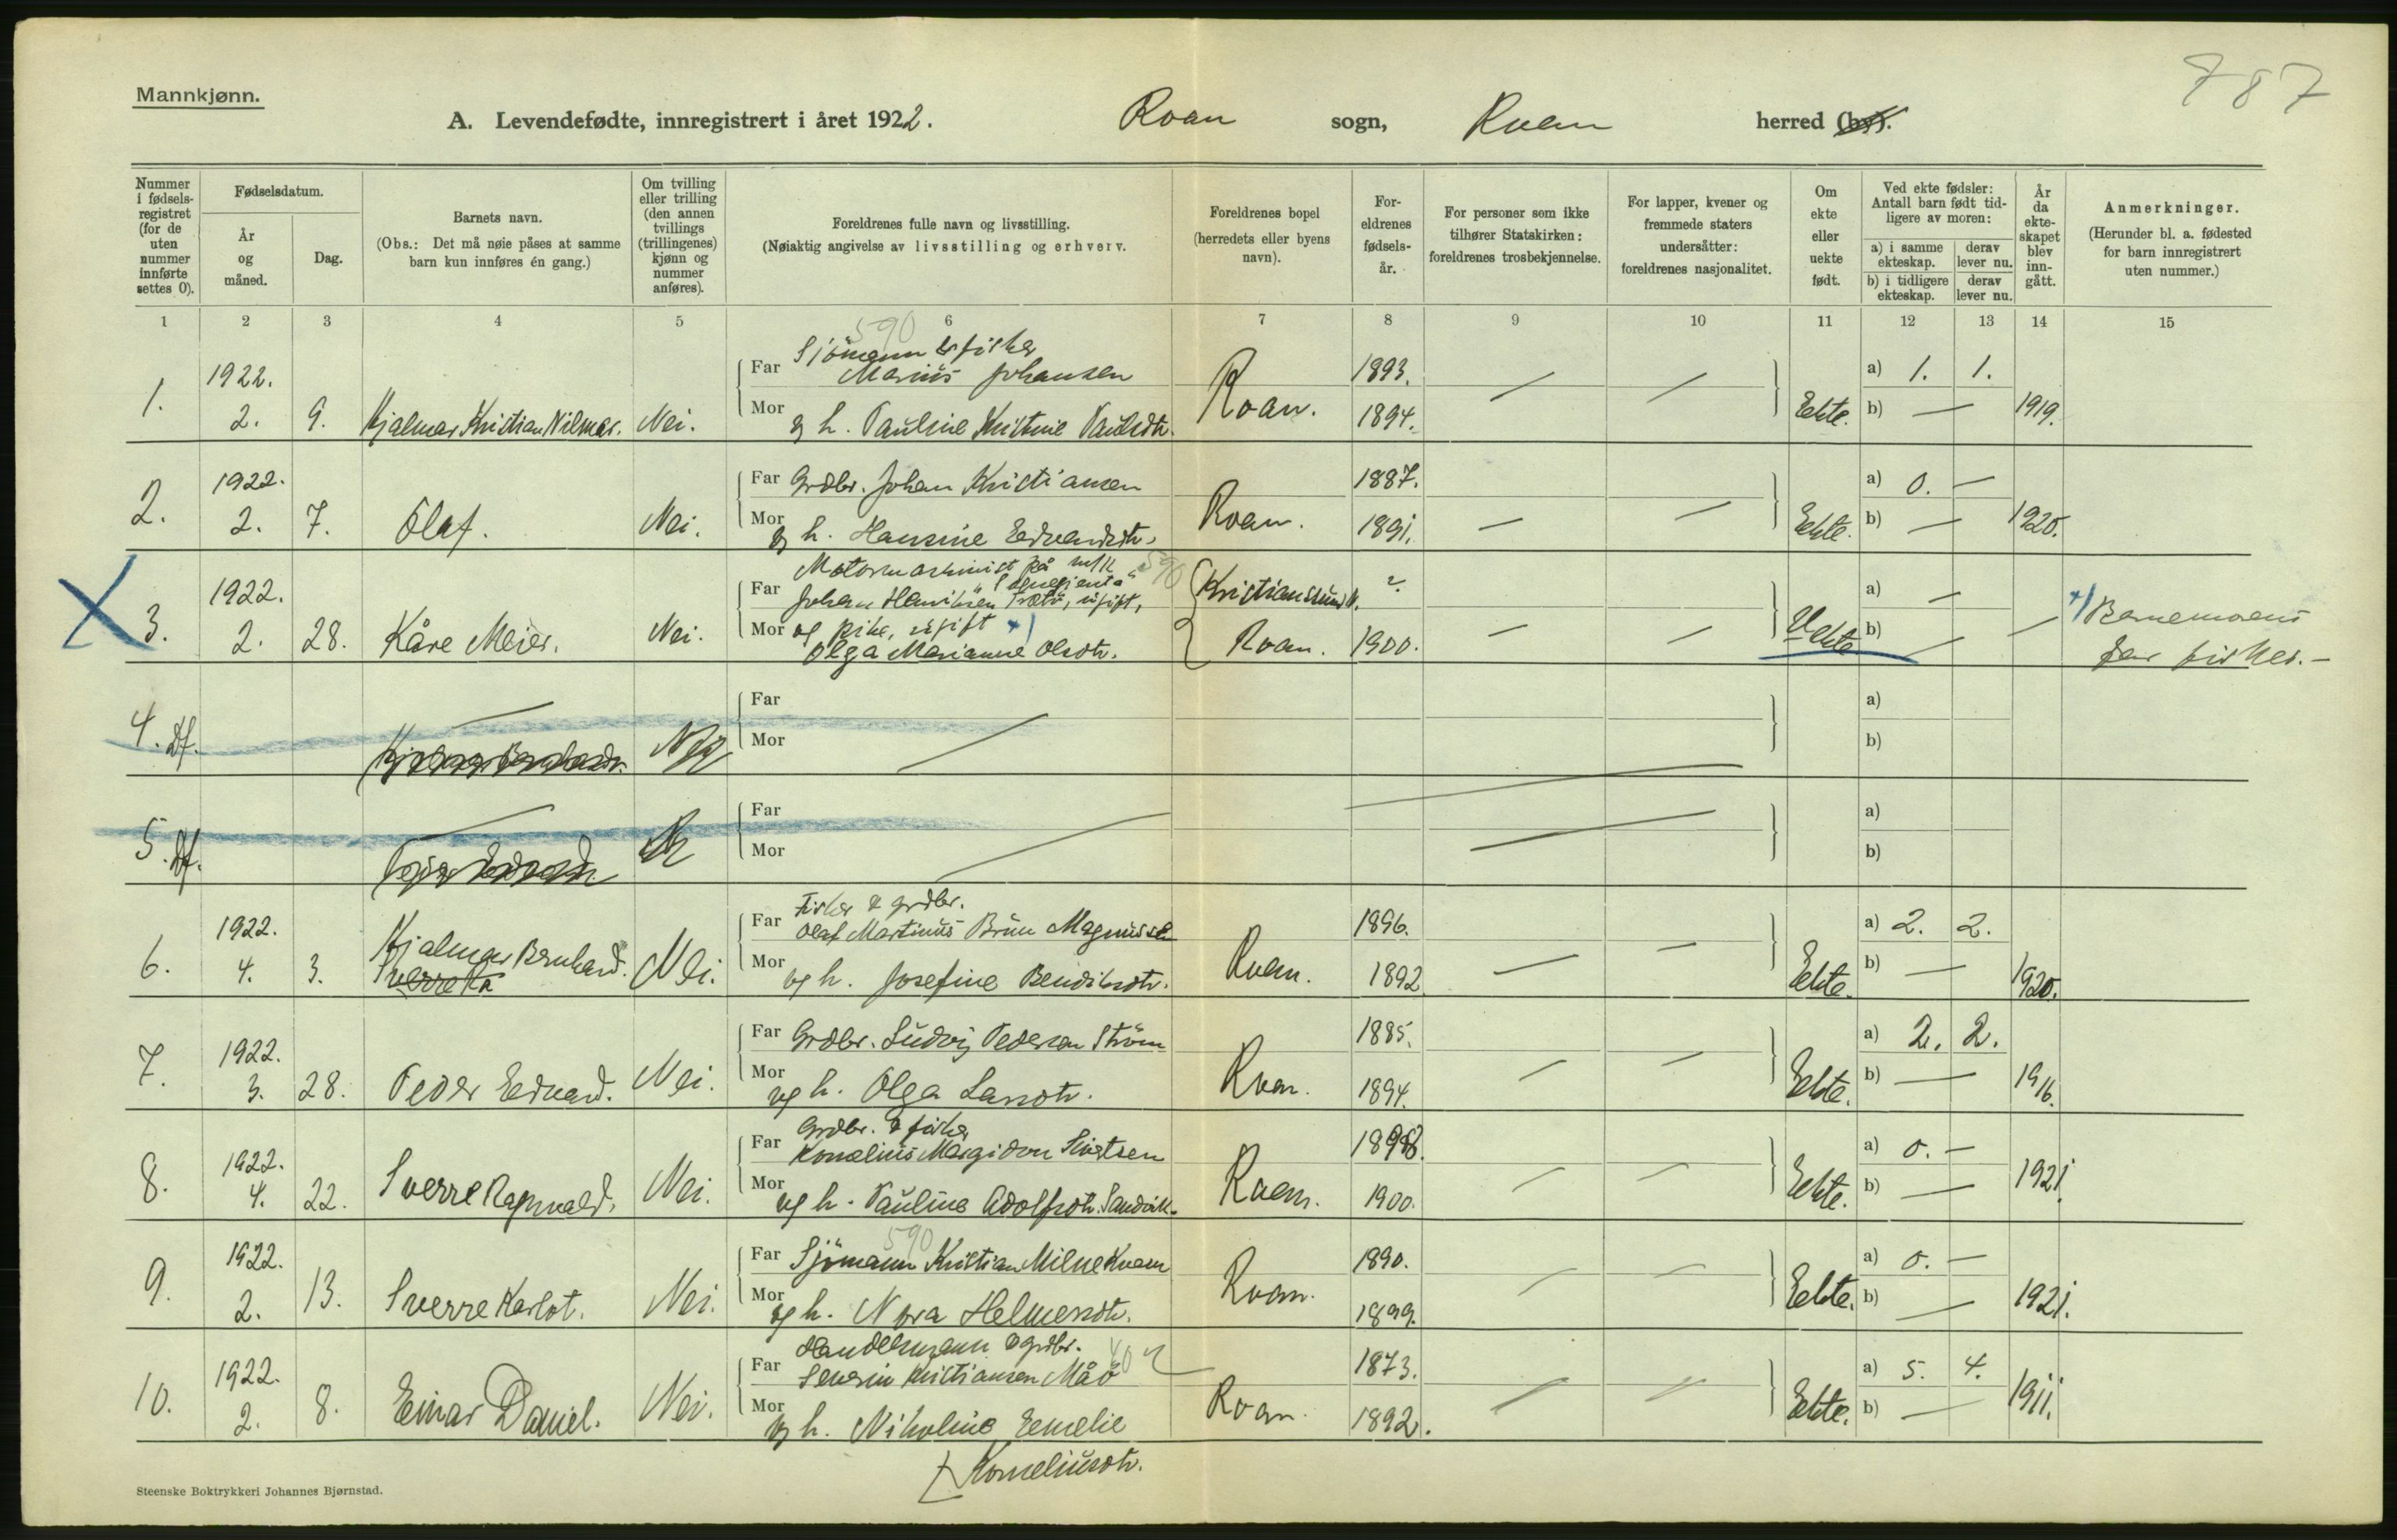 787
Mannkjønn.
A. Levendefødte, innregistrert i året 1922. Roan sogn, Roan herred (by).
Nummer i fødselsregistret (for de uten nummer innførte settes 0).
Fødselsdatum.
År og måned.
Dag.
Barnets navn.
(Obs.: Det må nøie påses at samme barn kun innføres én gang.)
Om tvilling eller trilling (den annen tvillings (trillingenes) kjønn og nummer anføres).
Foreldrenes fulle navn og livsstilling.
(Nøiaktig angivelse av livsstilling og erhverv.
Foreldrenes bopel (herredets eller byens navn).
Foreldrenes fødselsår.
For personer som ikke tilhører Statskirken: foreldrenes trosbekjennelse.
For lapper, kvener og fremmede staters undersåtter: foreldrenes nasjonalitet.
Om ekte eller uekte født.
Ved ekte fødsler: Antall barn født tidligere av moren:
a) i samme ekteskap.
derav lever nu.
b) i tidligere ekteskap.
derav lever nu.
År da ekteskapet blev inngått.
Anmerkninger.
(Herunder bl. a. fødested for barn innregistrert uten nummer.)
1 2 3 4 5 6 7 8 9 10 11 12 13 14 15
590
Sjömann & fisker
1922. Far Marius Johansen 1893. — — a) 1. 1.
1. 2. 9. Hjalmar Kristian Nilmar. Nei. Mor og h. Pauline Kristine Paulsdtr. Roan. 1894. Ekte. b) — 1919.
1922. Far Grdbr. Johan Kristiansen 1887. a) 0. —
2. 2. 7. Olaf. Nei. Mor og h. Hansine Edvardsdtr. Roan. 1891. — — Ekte. b) — 1920.
Motormaskinist på m/k 590
1922. Far Johan Henriksen, ugift, Kristiansund N. ? a) —
3. 2. 28. Kåre Meier. Nei. Mor og pike, ugift +) Roan. 1900. — — Uekte b) — — +) Barnemorens
Olga Marianne Olsdtr. far fisker. —
4. Df. — Nei Far — a)
Mor b)
5. Df. — Far — a)
Mor — b)
Fisker & grdbr.
1922. Hjalmar Bernhard. Far Olaf Martinus Brun Magnussen 1896. a) 2. 2.
6. 4. 3. Sverre Ra Nei. Mor og h. Josefine Bendiksdtr. Roan. 1892 — — Ekte. b) — 1920.
1922. Far Grdbr. Ludvig Pedersen Ström 1885. a) 2. 2.
7. 3. 28. Peder Edvard. Nei. Mor og h. Olga Larsdtr. Roan. 1894. — — Ekte. b) — 1916.
Grdbr. & fisker
1922. Far Kornelius Margidon Sivertsen a) 0. —
8. 4. 22. Sverre Ragnvald. Nei. Mor og h. Pauline Adolfsdtr. Sandvik. Roan. 1900. — — Ekte. b) — 1921.
590
1922. Far Sjömann Kristian Milne 1890. a) 0. —
9. 2. 13. Sverre Karlot. Nei. Mor og h. Nora Helmersdtr. Roan. 1899. — — Ekte. b) — 1921.
Handelsmann & grdbr.
1922. Far Severin Kristiansen Måö 1873. a) 5. 4.
10. 2. 8. Einar Daniel. Nei. Mor og h. Nikoline Emelie Roan. 1892. — — Ekte. b) — 1911.
Korneliusdtr.
Steenske Boktrykkeri Johannes Bjørnstad.